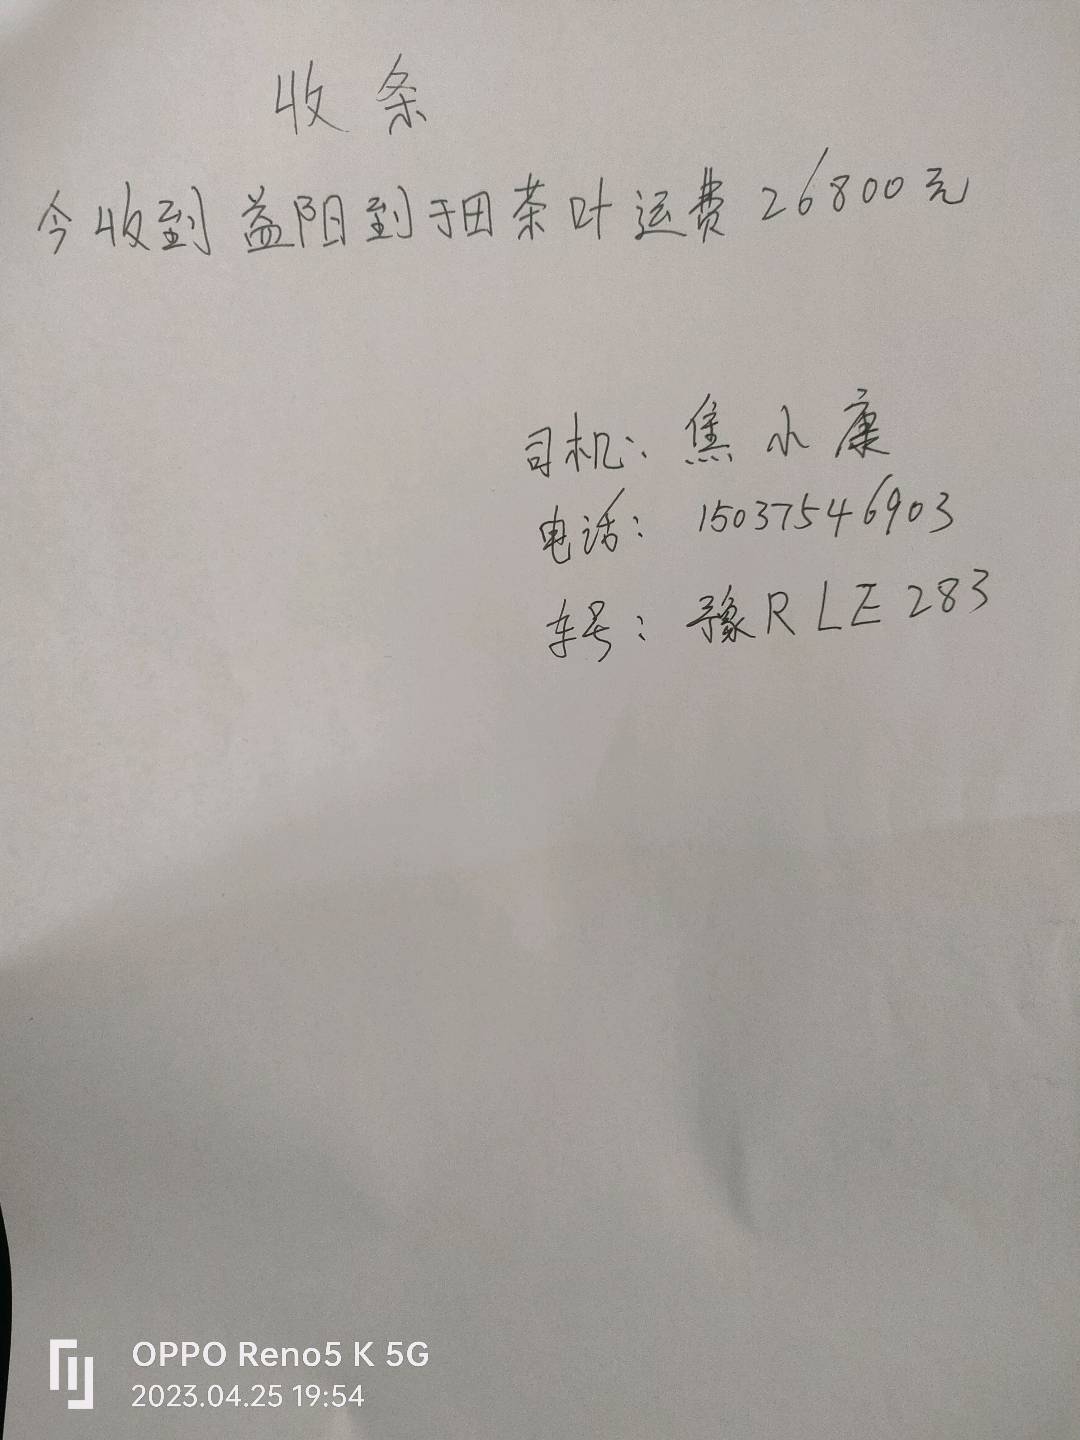 收条
今收到益阳到于田茶叶运费26800元
司机：焦小康
电话：15037546903
车号：豫RLE283
OPPO Reno5 K 5G
2023.04.25 19:54